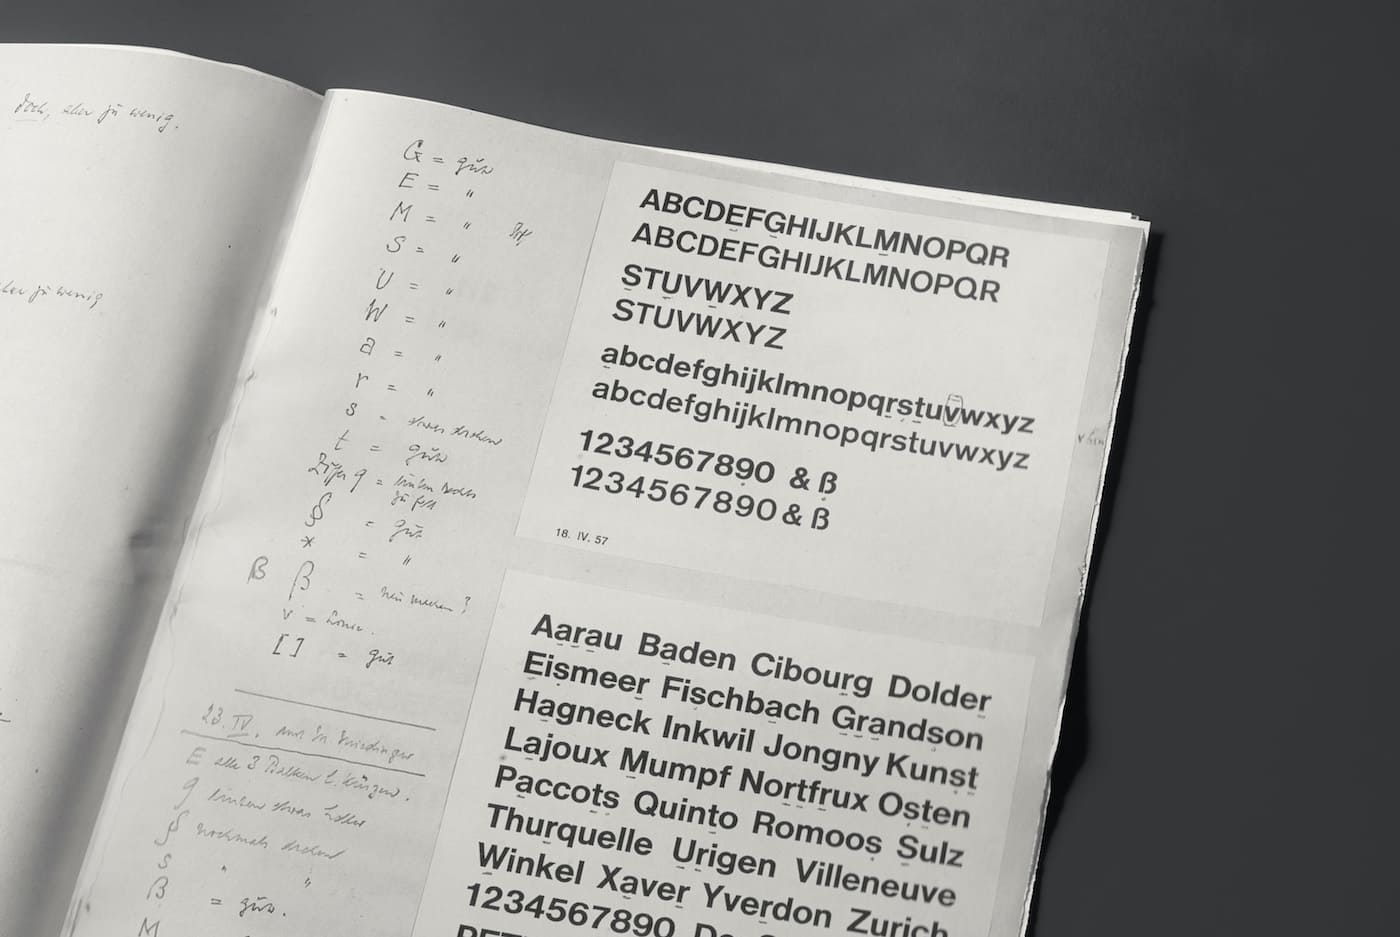 doch, aber zu wenig.
aber zu wenig
G = gut
E = "
M = "
S = "
U = "
W = "
a = "
r = "
s = etwas
t = gut
Ziffer 9 =
zu fett
§ = gut
* = "
ß ß = neu machen?
v =
[ ] = gut
23. IV.
E alle 3 Balken
g etwas
§ nochmals
s " "
ß = gut.
M
ABCDEFGHIJKLMNOPQR
ABCDEFGHIJKLMNOPQR
STUVWXYZ
STUVWXYZ
abcdefghijklmnopqrstuvwxyz
abcdefghijklmnopqrstuvwxyz
1234567890 & ß
1234567890 & ß
18. IV. 57
Aarau Baden Cibourg Dolder
Eismeer Fischbach Grandson
Hagneck Inkwil Jongny Kunst
Lajoux Mumpf Nortfrux Osten
Paccots Quinto Romoos Sulz
Thurquelle Urigen Villeneuve
Winkel Xaver Yverdon Zurich
1234567890